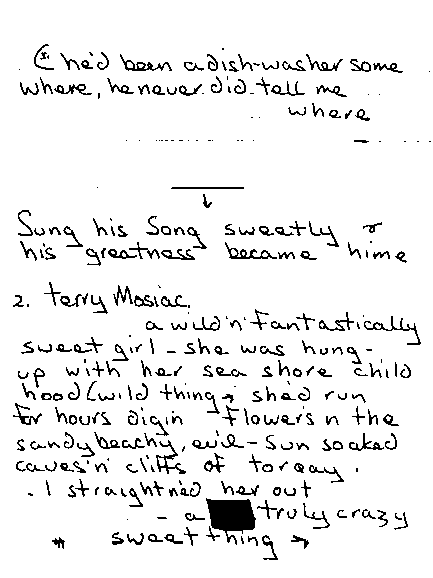 (* he'd been a dish-washer some
where, he never did tell me
where
Sung his Song sweetly &
his greatness became hime
2. terry Mosiac.
a wild'n'fantastically
sweet girl - she was hung-
up with her sea shore child
hood (wild thing → she'd run
for hours digin flowers n the
sandy beachy, evil - sun soaked
caves'n'cliffs of torqay.
. I straightned her out
- a truly crazy
* sweet thing →